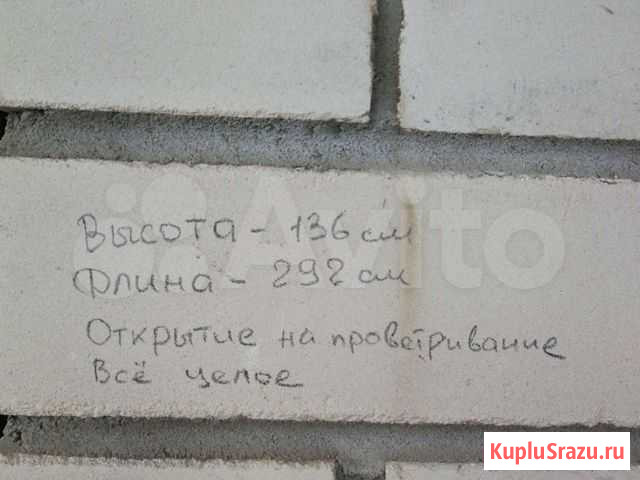 Высота - 136 см
Длина - 292 см
Открытие на проветривание
Всё целое
Avito
KupluSrazu.ru